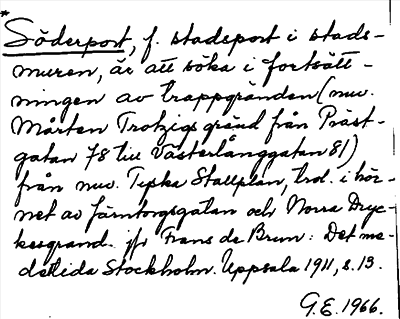 *
Söderport, f. stadsport i stads-
muren, är att söka i fortsätt-
ningen av trappgränden (nuv.
Mårten Trotzigs gränd från Präst-
gatan 78 till Västerlånggatan 81)
från nuv. Tyska Stallplan, trol. i hör-
net av Järntorgsgatan och Norra Dryc-
kesgränd. jfr Frans de Brun: Det me-
deltida Stockholm. Uppsala 1911, s. 13.
G.E. 1966.